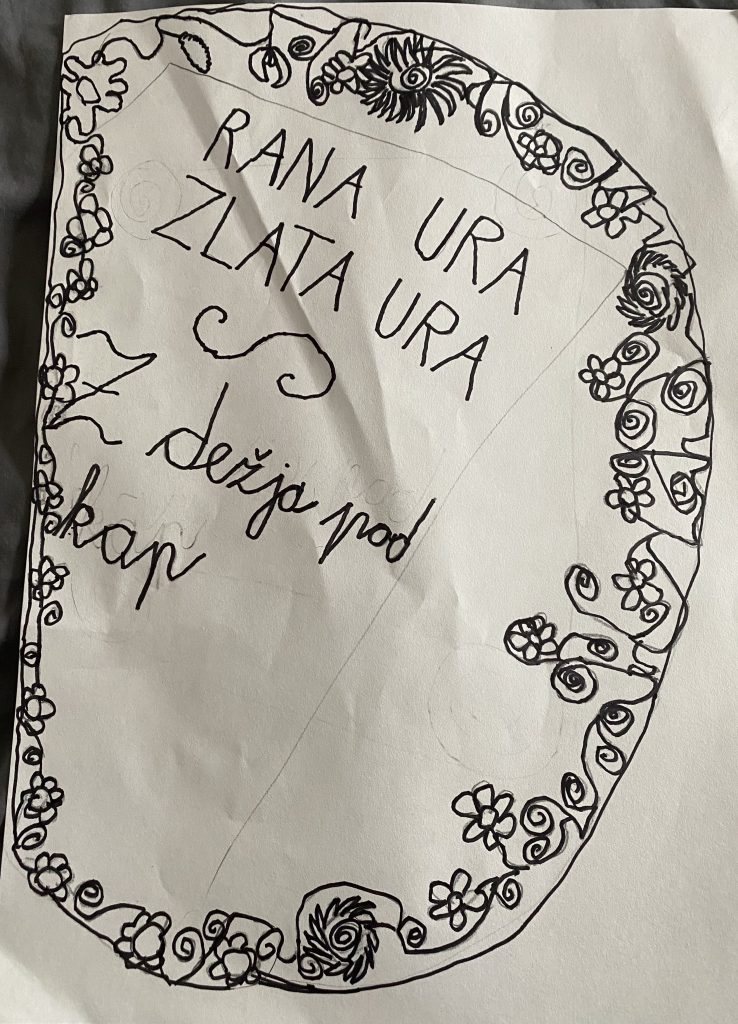 RANA URA
ZLATA URA
Z dežja pod
kap